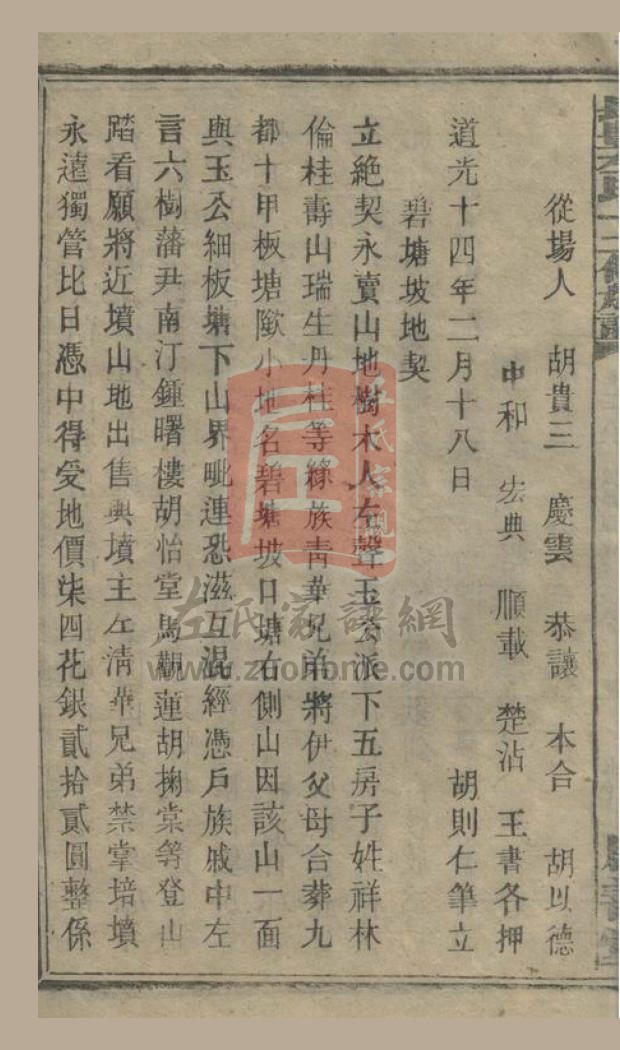 從場人　胡貴三　慶雲　恭讓　本合　胡以德
中和　宏典　順載　楚沾　王書各押
道光十四年二月十八日　胡則仁筆立
碧塘坡地契
立絶契永賣山地樹木人左聲玉公派下五房子姓祥林
倫桂壽山瑞生丹桂等緣族靑華兄弟將伊父母合葬九
都十甲板塘隂小地名碧塘坡口塘右側山因該山一面
與玉公細板塘下山界毗連恐滋互混經憑戶族戚中左
言六樹藩尹南汀鍾曙樓胡怡堂馬觀蓮胡掬棠等登山
踏看願將近墳山地出售與墳主左淸華兄弟禁掌培墳
永遠獨管比日憑中得受地價柒四花銀貳拾貳圓整係
左氏宗親
左氏家譜網
www.zuohome.com